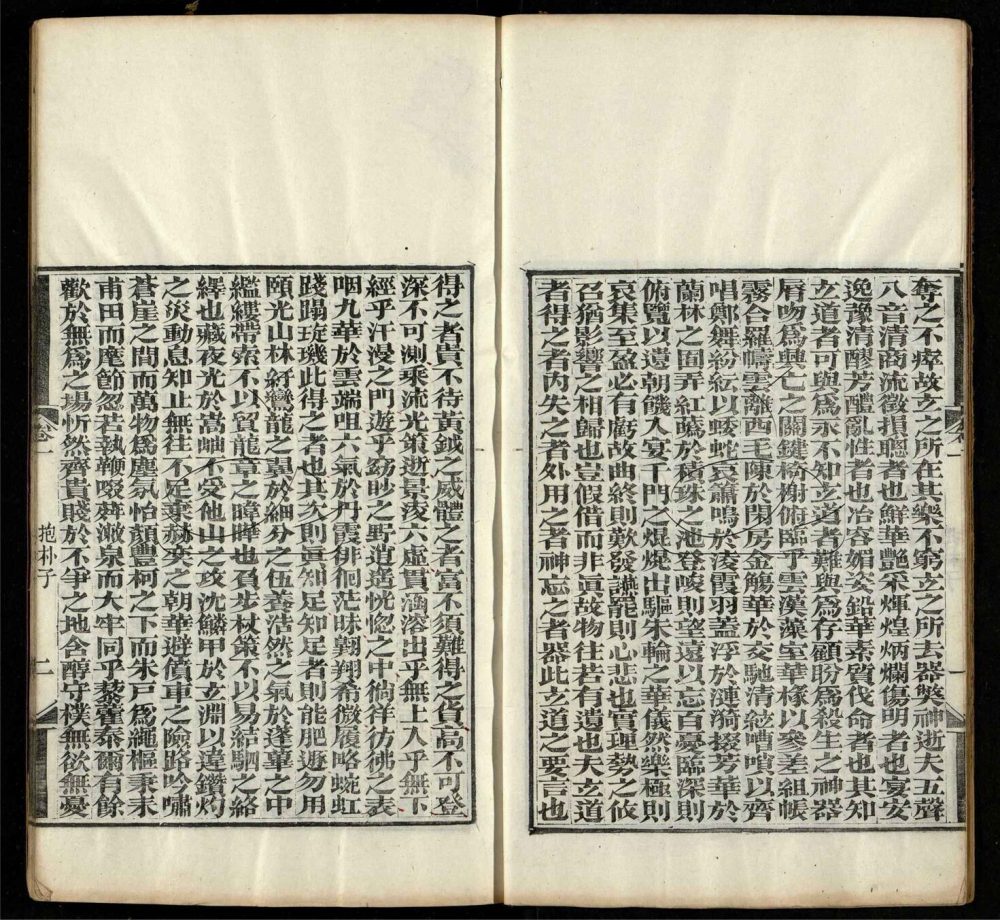 奪之不瘁故玄之所在其樂不窮玄之所去器弊神逝夫五聲
八音清商流徵損聰者也鮮華艷采煇煌炳爛傷明者也宴安
逸豫清醪芳醴亂性者也冶容媚姿鉛華素質伐命者也其知
玄道者可與爲永不知玄道者難與爲存顧盻爲殺生之神器
脣吻爲興亡之關鍵椅榭俯臨乎雲漢藻室華椽以參差組帳
霧合羅幬雲離西毛陳於閑房金觴華於交馳清絃嘈嘖以齊
唱鄭舞紛紜以蜲蛇哀簫鳴於淩霞羽蓋浮於漣漪掇芳華於
蘭林之囿弄紅葩於積珠之池登峻則望遠以忘百憂臨深則
俯覽以遺朝饑入宴千門之焜熀出驅朱輪之華儀然樂極則
哀集至盈必有虧故曲終則歎發讌罷則心悲也實理勢之攸
召猶影響之相歸也豈假借而非眞故物往若有遺也夫玄道
者得之者內失之者外用之者神忘之者器此玄道之要言也
得之者貴不待黃鉞之威體之者富不須難得之貨高不可登
深不可測乘流光策逝景淩六虛貫涵溶出乎無上入乎無下
經乎汗漫之門遊乎窈眇之野逍遙恍惚之中徜徉彷彿之表
咽九華於雲端咀六氣於丹霞徘徊茫昧翱翔希微履略蜿虹
踐躡琁璣此得之者也其次則眞知足知足者則能肥遊勿用
頤光山林紆鸞龍之翼於細分之伍養浩然之氣於蓬蓽之中
繿縷帶索不以貿龍章之暐曄也負步杖策不以易結駟之絡
繹也藏夜光於嵩岫不受他山之攻沈鱗甲於玄淵以違鑽灼
之災動息知止無往不足棄赫奕之朝華避僨車之險路吟嘯
蒼崖之間而萬物爲塵氛怡顏豐柯之下而朱戶爲繩樞秉耒
甫田而麾節忽若執鞭啜荈漱泉而大牢同乎藜藿泰爾有餘
歡於無爲之場忻然齊貴賤於不爭之地含醇守樸無欲無憂
卷一
抱朴子
二